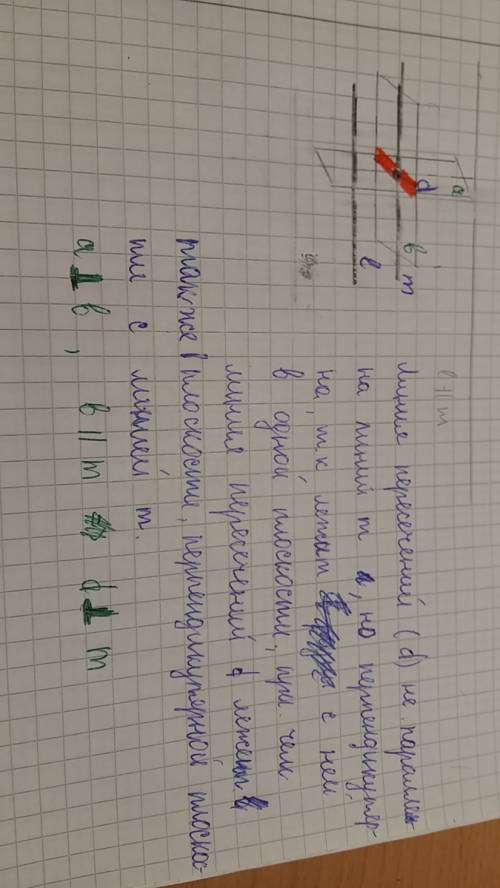 a
d
в
m
l
в || m
Линия пересечений (d) не паралель-
на линий m, но перпендикуляр-
на, т.к лежат с ней
в одной плоскости, при чем
линия пересечений d лежит
также в плоскости, перпендикулярной плоскос-
ти с линией m.
a ⊥ в, в || m d ⊥ m